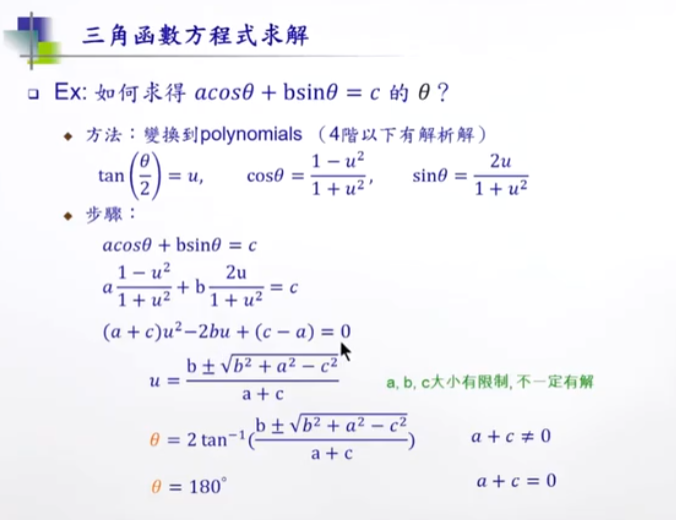 三角函數方程式求解
Ex: 如何求得 acosθ + bsinθ = c 的 θ？
方法：變換到polynomials （4階以下有解析解）
tan(θ/2) = u, cosθ = (1 − u²)/(1 + u²), sinθ = 2u/(1 + u²)
步驟：
acosθ + bsinθ = c
a (1 − u²)/(1 + u²) + b 2u/(1 + u²) = c
(a + c)u²−2bu + (c − a) = 0
u = (b ± √(b² + a² − c²))/(a + c) a, b, c大小有限制, 不一定有解
θ = 2 tan⁻¹((b ± √(b² + a² − c²))/(a + c)) a + c ≠ 0
θ = 180° a + c = 0